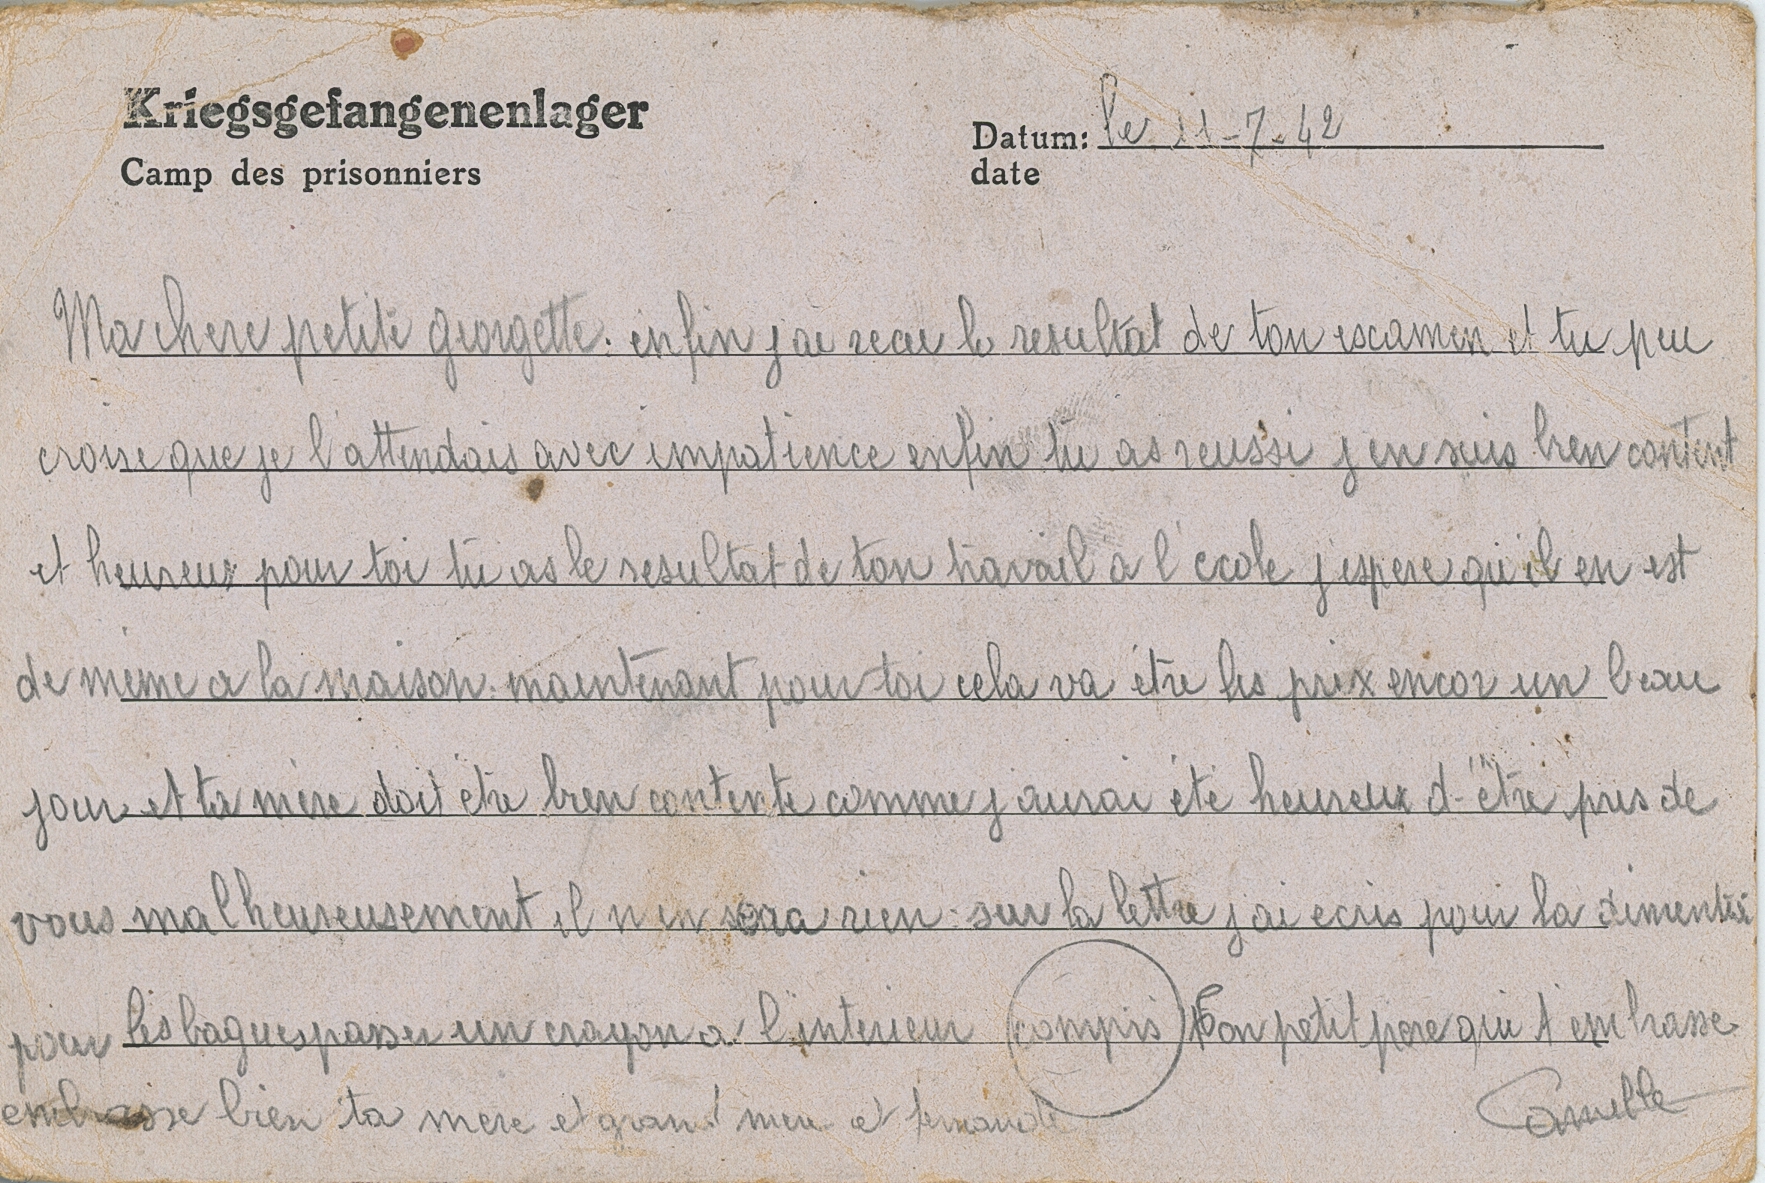 Kriegsgefangenenlager
Camp des prisonniers
Datum: le 11-7-42
date
Ma chere petite georgette. enfin j ai recu le resultat de ton escamen et tu peu
croire que je l'attendais avec impatience enfin tu as reussi j en suis bien content
et heureux pour toi tu as le resultat de ton travail a l'école j espere qu'il en est
de même a la maison. maintenant pour toi cela va être les prix encor un beau
jour et ta mère doit être bien contente comme j aurai été heureux d-être pres de
vous malheureusement il n en sera rien. sur la lettre j ai ecris pour la
pour les bagues passer un crayon a l'interieur compris Ton petit pere qui t'embrasse
embrasse bien ta mere et grand mere et fernande